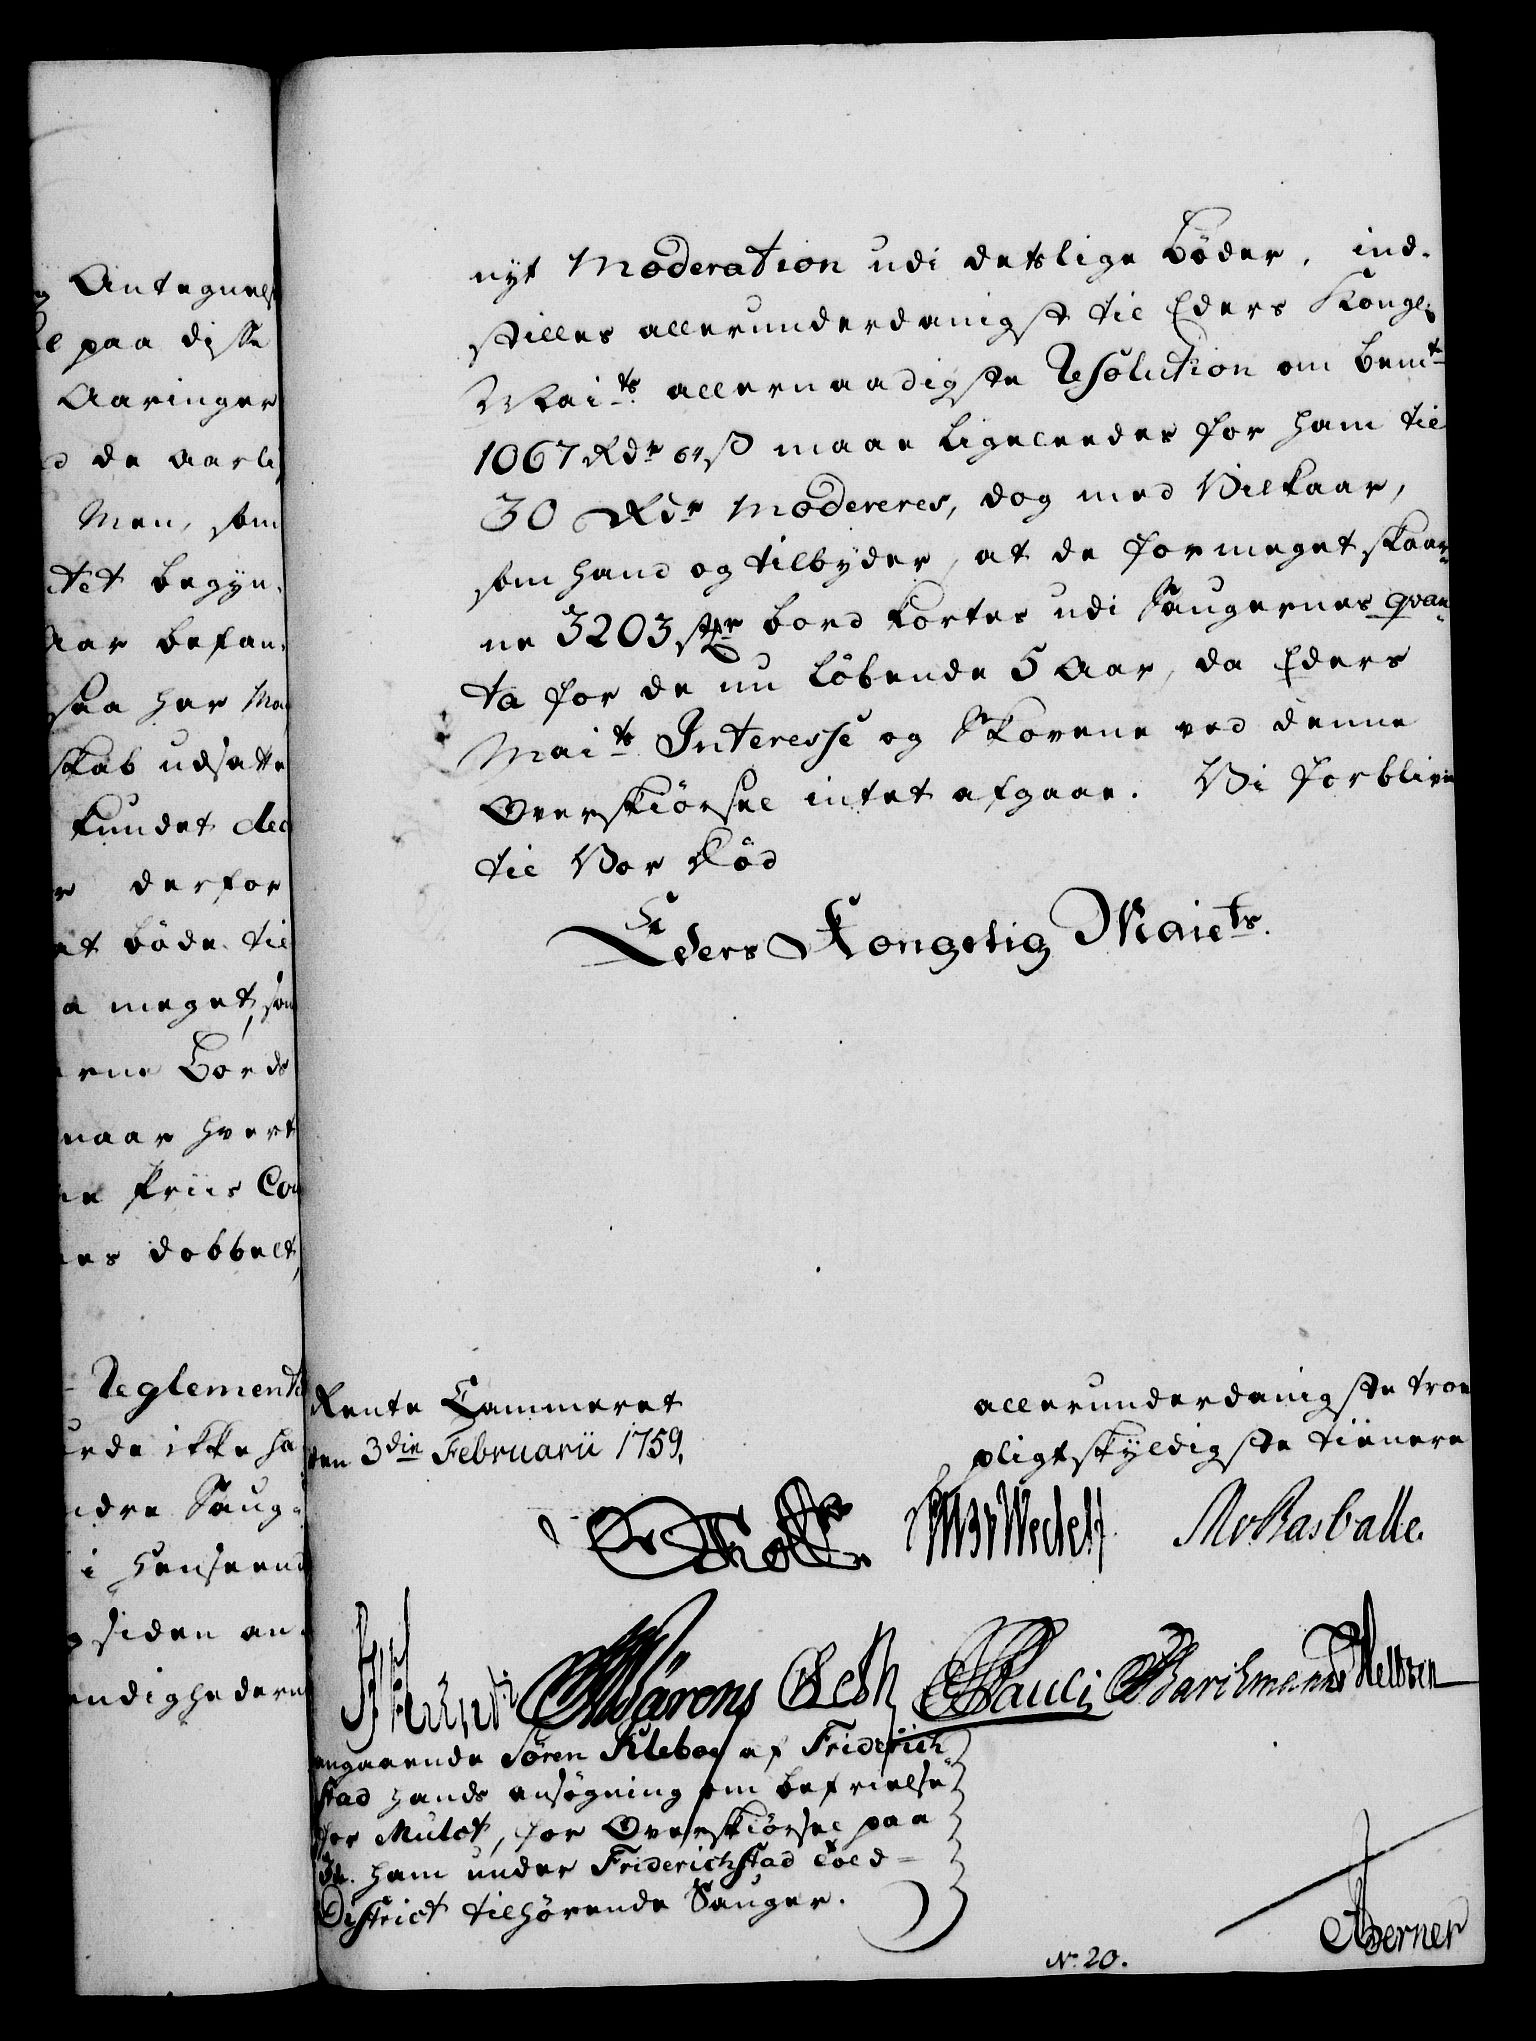 Antegnels
paa disse
Aaringer
de aarli
Men, som
tet begyn-
Aar befan-
saa har Ma
skab udsatte
kundet dec
derfor
at bøde til
meget, som
erne Bords
naar hvert
Priis Co
es dobbelt,
Reglement
ikke ha
ndre Saug-
i Henseend
siden an-
endighedern
nyt Moderation udi detslige Bøder, ind-
stilles allerunderdanigst til Eders Kongl:
Mai.ts allernaadigste Resolution om bem.te
1067 Rdr 64 ß maae ligeleedes for ham til
30 Rdr modereres, dog med Vilkaar,
som hand og tilbyder, at de formeget skaar-
ne 3203 st.r bord kortes udi Saugernes qvan-
ta for de nu løbende 5 Aar, da Eders
Mai.ts Interesse og Skovene ved denne
Overskiørsel intet afgaar. Vi forblive
til Vor Død
Eders Kongelig Maiets.
Rente Cammeret
den 3die Februarii 1759.
allerunderdanigste troe
pligtskyldigste tienere
Holst
Wedell
Rasballe.
Wärens Oeth Pauli Barchmann Heltzen
angaaende Søren Klebog af Friderich
stad hands ansøgning om befrielse
for Mulct, for Overskiørsel paa
de ham under Friderichstad Told-
District tilhørende Sauger.
Aberner
No. 20.